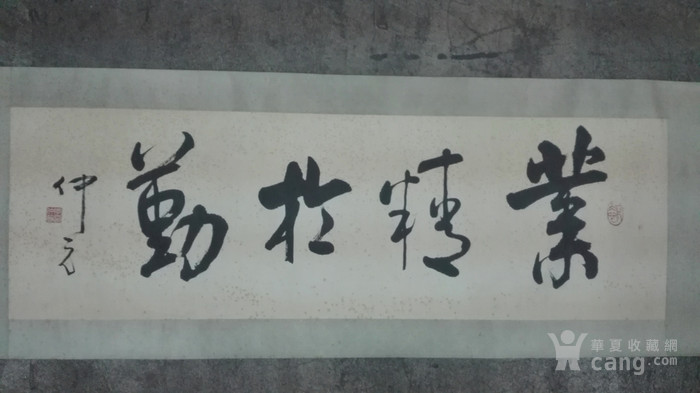 業精於勤
仲元
華夏收藏網
cang.com